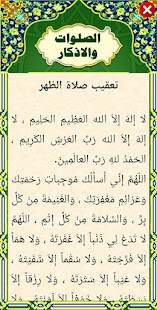 الصلوات
والاذكار
تعقيب صلاة الظهر
لا إلهَ إلاّ اللهُ العَظيمُ الحَليمُ ، لا
إلهَ إلاّ اللهُ رَبُّ العَرْشِ الكَريمُ ،
الحَمْدُ للهِ رَبِّ العالَمينَ.
اللّهُمَّ إنّي أسألُكَ مُوجِباتِ رَحْمَتِكَ
وَعَزائِمَ مَغْفِرَتِكَ ، وَالغَنيمَةَ مِن كُلِّ
بِرٍّ ، وَالسَّلامَةَ مِنْ كُلِّ إثمٍ. اللّهُمَّ
لا تَدَعْ لِي ذَنْباً إلاّ غَفَرْتَهُ ، وَلا هَمّاً
إلاّ فَرَّجْتَهُ ، وَلا سُقْماً إلاّ شَفَيْتَهُ ،
وَلا عَيْباً إلاّ سَتَرْتَهُ ، وَلا رِزْقاً إلاّ
بَسَطْتَهُ ، وَلا خَوْفاً إلاّ آمَنْتَهُ ، وَلا